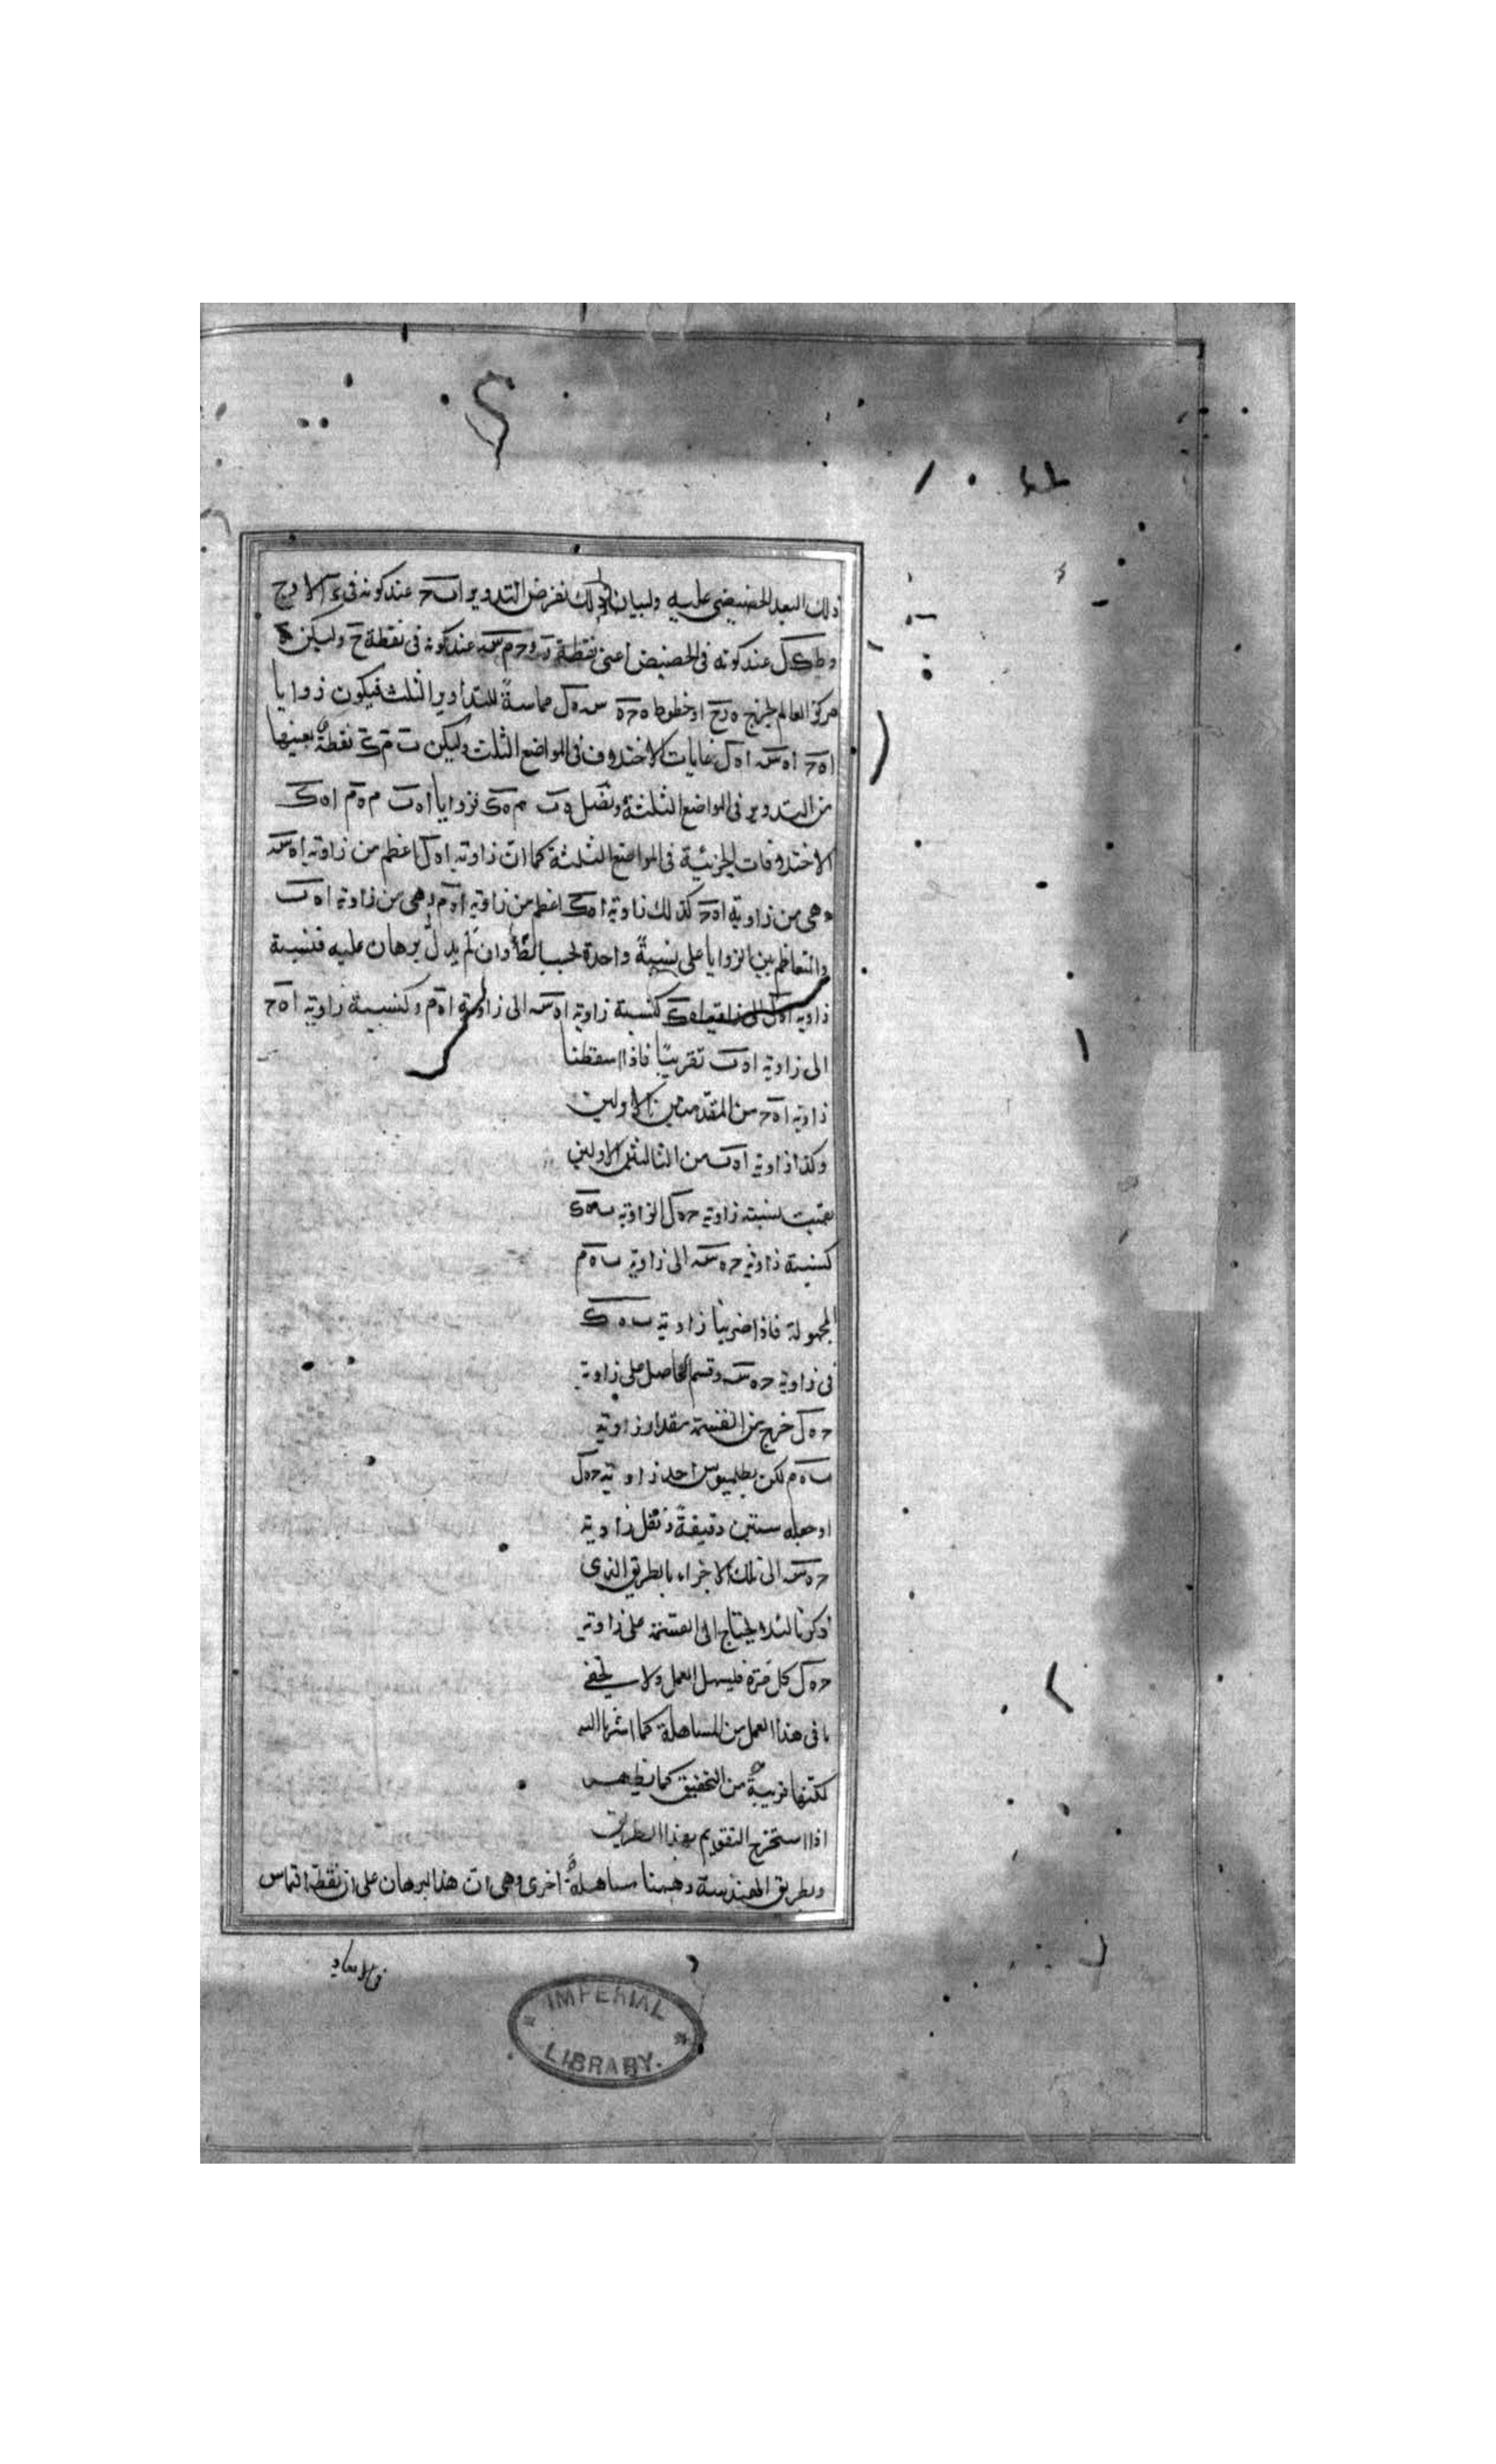 ذلك البعد الحضيضي عليه ولبيان ذلك نفرض التدوير ا ب ح عند كونه في الاوج
و ط ك ل عند كونه في الحضيض اعنى نقطة و ح م س عند كونه في نقطة ح وليكن ه
مركز العالم خطوط ه ح ه س ه ل مماسة للتداوير الثلث فيكون زوايا
ا ه ح ا ه س ا ه ل غايات الاختلاف في المواضع الثلث وليكن ب م ك نقطة بعينها
من التدوير في المواضع الثلثة ونصل ه ب ه م ه ك فزوايا ا ه ب ا ه ك
الاختلافات الجزئية في المواضع الثلثة كما ان زاوية ا ه ل اعظم من زاوية ا ه س
وهي من زاوية ا ه ح كذلك زاوية ا ه ك اعظم من زاوية ا ه م وهي من زاوية ا ه ب
والتعاظم بين الزوايا على نسبة واحدة بحسب وان لم يدل برهان عليه فنسبة
زاوية ا ه ل الى زاوية ا ه ك كنسبة زاوية ا ه س الى زاوية ا ه م وكنسبة زاوية ا ه ح
الى زاوية ا ه ب تقريبًا فاذا اسقطنا
زاوية ا ه ح من المقدمتين الاولين
وكذا زاوية ا ه ب من التاليين الاولين
بقيت نسبة زاوية ح ه ل الى زاوية ب ه ك
كنسبة زاوية ح ه س الى زاوية ب ه م
المجهولة فاذا ضربنا زاوية ب ه ك
في زاوية ح ه س وقسم الحاصل على زاوية
ح ه ل خرج من القسمة مقدار زاوية
ب ه م لكن بطلميوس اخذ زاوية ح ه ل
او جعله ستين دقيقةً ونقل زاوية
ح ه س الى تلك الاجزاء بالطريق الذى
ذكرنا لئلا يحتاج الى القسمة على زاوية
ح ه ل كل مرة فليسهل العمل ولا يخفى
ما في هذا العمل من المساهلة كما اشرنا اليه
لكنها قريبة من التحقيق كما يظهر
اذا استخرج التقويم بهذا الطريق
وبطريق الهندسة وههنا مساهلة اخرى وهى ان هذا البرهان على ان نقطة التماس
في الابعاد
IMPERIAL
LIBRARY.